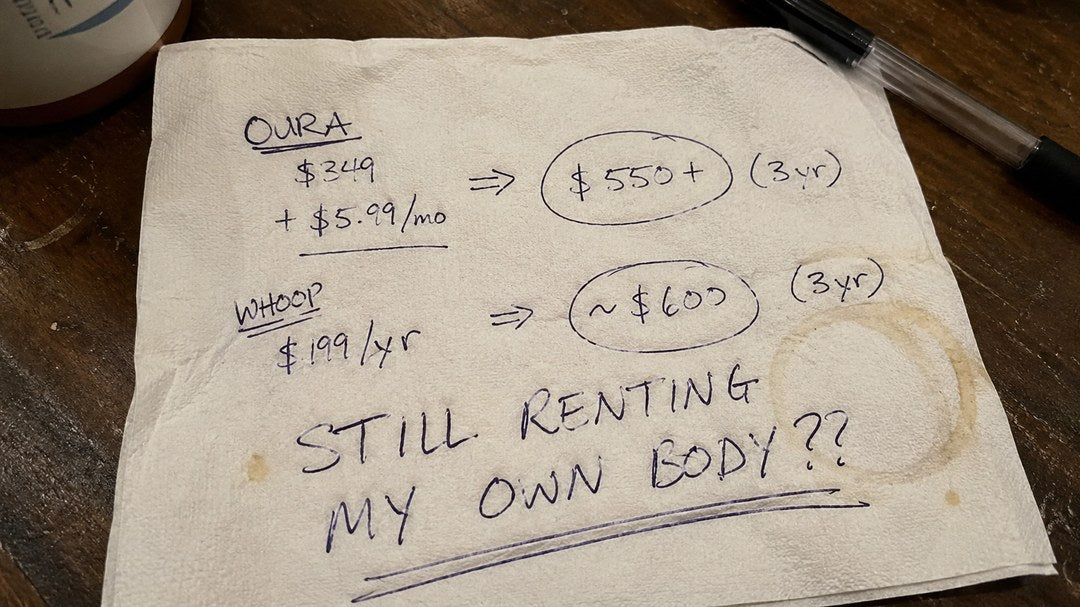 OURA
$349
+ $5.99/mo
⇒ $550+ (3yr)
WHOOP
$199/yr
⇒ ~$600 (3yr)
STILL RENTING
MY OWN BODY??